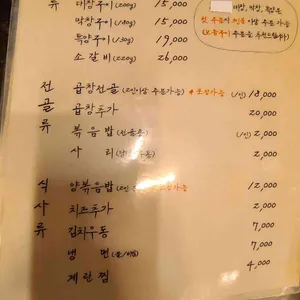 류 대창구이 (220g) 15,000
막창구이 (180g) 15,000
특양구이 (130g) 19,000
소갈비 (220g) 26,000
대창, 막창, 특양은
첫 주문시 2인분 이상 주문가능
전 곱창전골 (2인이상 주문가능) (1인) 18,000
골 곱창추가 20,000
류 볶음밥 (1인) 2,000
사리 2,000
식 양볶음밥 12,000
사 치즈추가 2,000
류 김치우동 7,000
냉면 (물/비빔) 7,000
계란찜 4,000